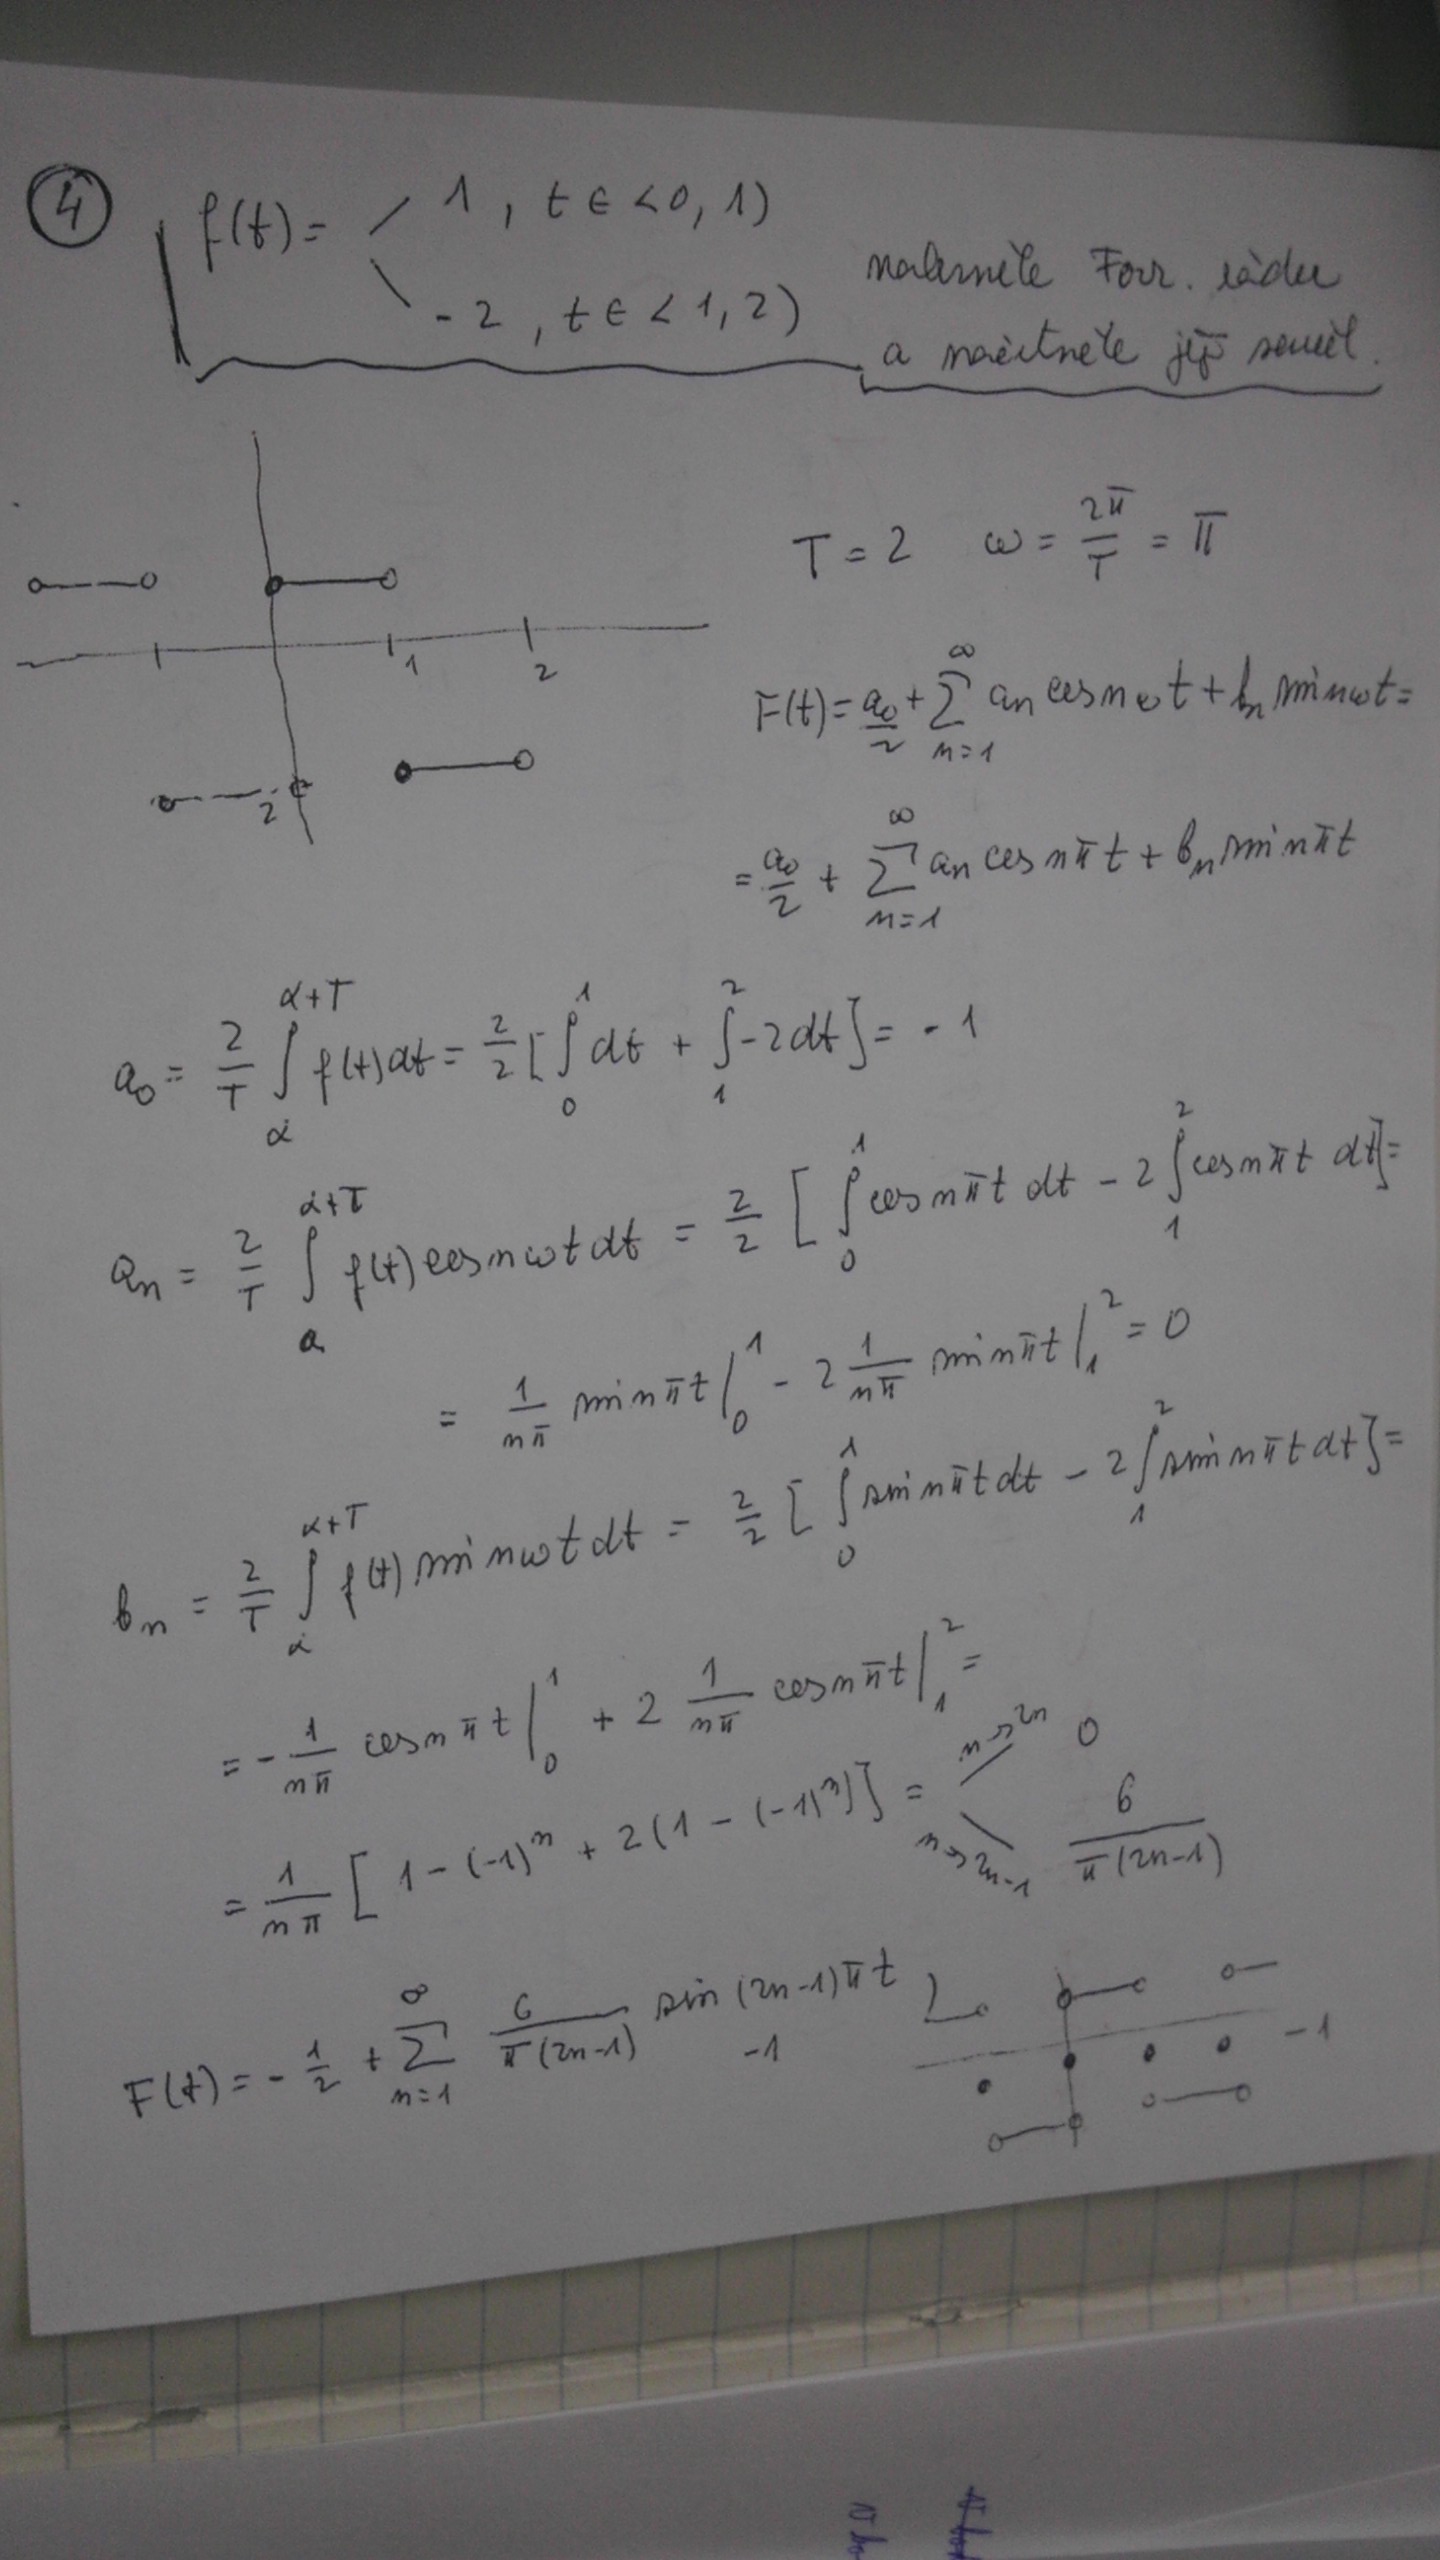 4
f(t) = 1, t ∈ <0, 1)
-2, t ∈ <1, 2)
Four. řadu
a načrtněte její součet.
T = 2 ω = 2π/T = π
F(t) = a₀/2 + ∑_{n=1}^{∞} aₙ cos nωt + bₙ sin nωt =
= a₀/2 + ∑_{n=1}^{∞} aₙ cos nπt + bₙ sin nπt
1
2
2
a₀ = 2/T ∫_{α}^{α+T} f(t) dt = 2/2 [∫_{0}^{1} dt + ∫_{1}^{2} -2dt] = -1
aₙ = 2/T ∫_{a}^{α+T} f(t) cos nωt dt = 2/2 [∫_{0}^{1} cos nπt dt - 2∫_{1}^{2} cos nπt dt] =
= 1/nπ sin nπt |_{0}^{1} - 2 1/nπ sin nπt |_{1}^{2} = 0
bₙ = 2/T ∫_{α}^{α+T} f(t) sin nωt dt = 2/2 [∫_{0}^{1} sin nπt dt - 2∫_{1}^{2} sin nπt dt] =
= - 1/nπ cos nπt |_{0}^{1} + 2 1/nπ cos nπt |_{1}^{2} =
= 1/nπ [1 - (-1)ⁿ + 2(1 - (-1)ⁿ)] = n→2n 0
n→2n-1 6/π(2n-1)
F(t) = - 1/2 + ∑_{n=1}^{∞} 6/π(2n-1) sin (2n-1)πt
-1
-1